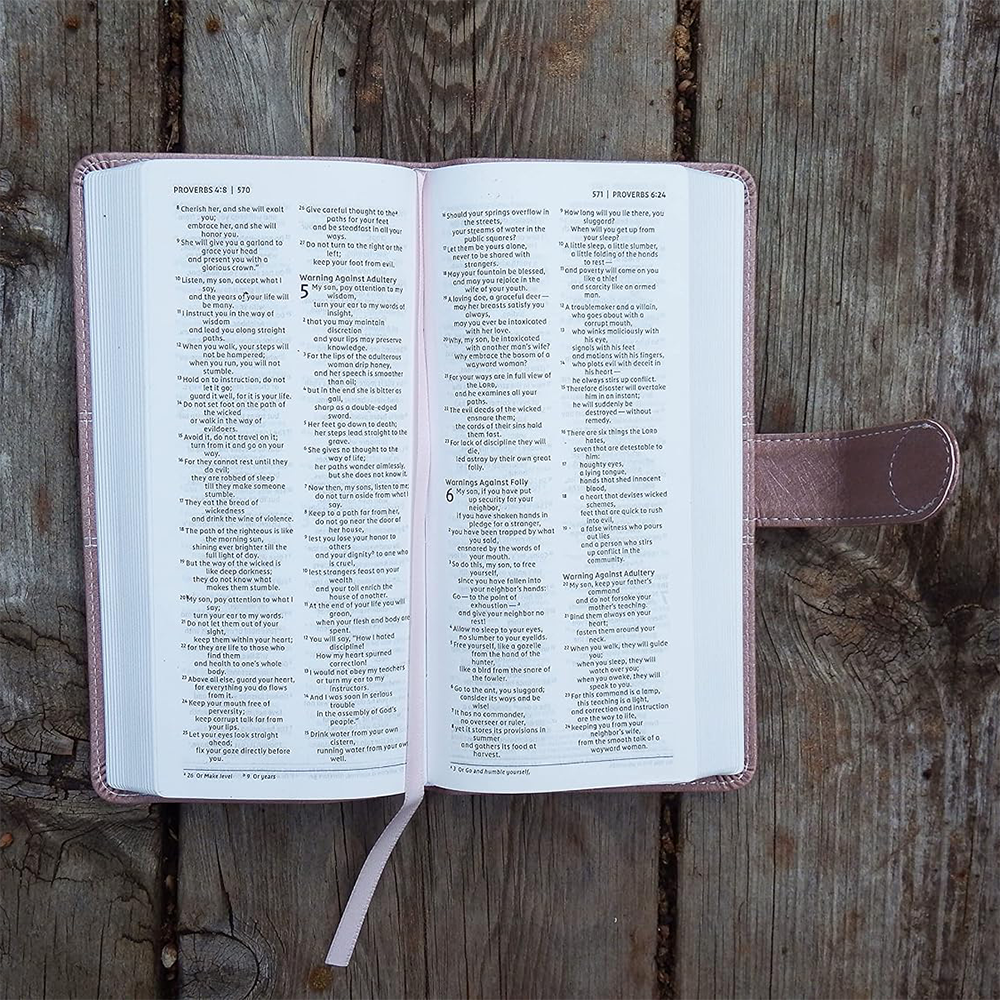 PROVERBS 4:8 | 570
8 Cherish her, and she will exalt
you;
embrace her, and she will
honor you.
9 She will give you a garland to
grace your head
and present you with a
glorious crown."
10 Listen, my son, accept what I
say,
and the years of your life will
be many.
11 I instruct you in the way of
wisdom
and lead you along straight
paths.
12 When you walk, your steps will
not be hampered;
when you run, you will not
stumble.
13 Hold on to instruction, do not
let it go;
guard it well, for it is your life.
14 Do not set foot on the path of
the wicked
or walk in the way of
evildoers.
15 Avoid it, do not travel on it;
turn from it and go on your
way.
16 For they cannot rest until they
do evil;
they are robbed of sleep
till they make someone
stumble.
17 They eat the bread of
wickedness
and drink the wine of violence.
18 The path of the righteous is like
the morning sun,
shining ever brighter till the
full light of day.
19 But the way of the wicked is
like deep darkness;
they do not know
what makes them stumble.
20 My son, pay attention to what I
say;
turn your ear to my words.
21 Do not let them out of your
sight,
keep them within your heart;
22 for they are life to those who
find them
and health to one's whole
body.
23 Above all else, guard your heart,
for everything you do flows
from it.
24 Keep your mouth free of
perversity;
keep corrupt talk far from
your lips.
25 Let your eyes look straight
ahead;
fix your gaze directly before
you.
26 Give careful thought to the a
paths for your feet
and be steadfast in all your
ways.
27 Do not turn to the right or the
left;
keep your foot from evil.
Warning Against Adultery
5 My son, pay attention to my
wisdom,
turn your ear to my words of
insight,
2 that you may maintain
discretion
and your lips may preserve
knowledge.
3 For the lips of the adulterous
woman drip honey,
and her speech is smoother
than oil;
4 but in the end she is bitter as
gall,
sharp as a double-edged
sword.
5 Her feet go down to death;
her steps lead straight to the
grave.
6 She gives no thought to the
way of life;
her paths wander aimlessly,
but she does not know it.
7 Now then, my sons, listen to me;
do not turn aside from what I
say.
8 Keep to a path far from her,
do not go near the door of
her house,
9 lest you lose your honor to
others
and your dignity b to one who
is cruel,
10 lest strangers feast on your
wealth
and your toil enrich the
house of another.
11 At the end of your life you will
groan,
when your flesh and body are
spent.
12 You will say, "How I hated
discipline!
How my heart spurned
correction!
13 I would not obey my teachers
or turn my ear to my
instructors.
14 And I was soon in serious
trouble
in the assembly of God's
people."
15 Drink water from your own
cistern,
running water from your own
well.
a 26 Or Make level b 9 Or years
571 | PROVERBS 6:24
16 Should your springs overflow in
the streets,
your streams of water in the
public squares?
17 Let them be yours alone,
never to be shared with
strangers.
18 May your fountain be blessed,
and may you rejoice in the
wife of your youth.
19 A loving doe, a graceful deer—
may her breasts satisfy you
always,
may you ever be intoxicated
with her love.
20 Why, my son, be intoxicated
with another man's wife?
Why embrace the bosom of a
wayward woman?
21 For your ways are in full view of
the LORD,
and he examines all your
paths.
22 The evil deeds of the wicked
ensnare them;
the cords of their sins hold
them fast.
23 For lack of discipline they will
die,
led astray by their own great
folly.
Warnings Against Folly
6 My son, if you have put
up security for your
neighbor,
if you have shaken hands in
pledge for a stranger,
2 you have been trapped by what
you said,
ensnared by the words of
your mouth.
3 So do this, my son, to free
yourself,
since you have fallen into
your neighbor's hands:
Go—to the point of
exhaustion— a
and give your neighbor no
rest!
4 Allow no sleep to your eyes,
no slumber to your eyelids.
5 Free yourself, like a gazelle
from the hand of the
hunter,
like a bird from the snare of
the fowler.
6 Go to the ant, you sluggard;
consider its ways and be
wise!
7 It has no commander,
no overseer or ruler,
8 yet it stores its provisions in
summer
and gathers its food at
harvest.
9 How long will you lie there, you
sluggard?
When will you get up from
your sleep?
10 A little sleep, a little slumber,
a little folding of the hands
to rest—
11 and poverty will come on you
like a thief
and scarcity like an armed
man.
12 A troublemaker and a villain,
who goes about with a
corrupt mouth,
13 who winks maliciously with
his eye,
signals with his feet
and motions with his fingers,
14 who plots evil with deceit in
his heart—
he always stirs up conflict.
15 Therefore disaster will overtake
him in an instant;
he will suddenly be
destroyed—without
remedy.
16 There are six things the LORD
hates,
seven that are detestable to
him:
17 haughty eyes,
a lying tongue,
hands that shed innocent
blood,
18 a heart that devises wicked
schemes,
feet that are quick to rush
into evil,
19 a false witness who pours
out lies
and a person who stirs
up conflict in the
community.
Warning Against Adultery
20 My son, keep your father's
command
and do not forsake your
mother's teaching.
21 Bind them always on your
heart;
fasten them around your
neck.
22 When you walk, they will guide
you;
when you sleep, they will
watch over you;
when you awake, they will
speak to you.
23 For this command is a lamp,
this teaching is a light,
and correction and instruction
are the way to life,
24 keeping you from your
neighbor's wife,
from the smooth talk of a
wayward woman.
a 3 Or Go and humble yourself,